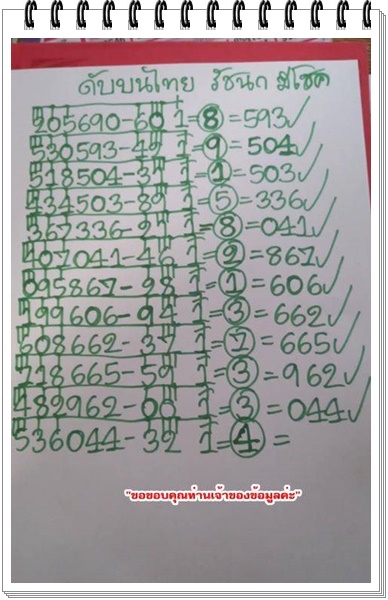 ดับบนไทย รัชนก มีโชค
205690-60 1=8=593✓
530593-49 1=9=504✓
518504-37 1=1=503✓
434503-89 1=5=336✓
367336-21 1=8=041✓
407041-46 1=2=867✓
095867-98 1=1=606✓
799606-94 1=3=662✓
508662-37 1=7=665✓
718665-59 1=3=962✓
482962-00 1=3=044✓
536044-32 1=4=
"ขอขอบคุณท่านเจ้าของข้อมูลค่ะ"